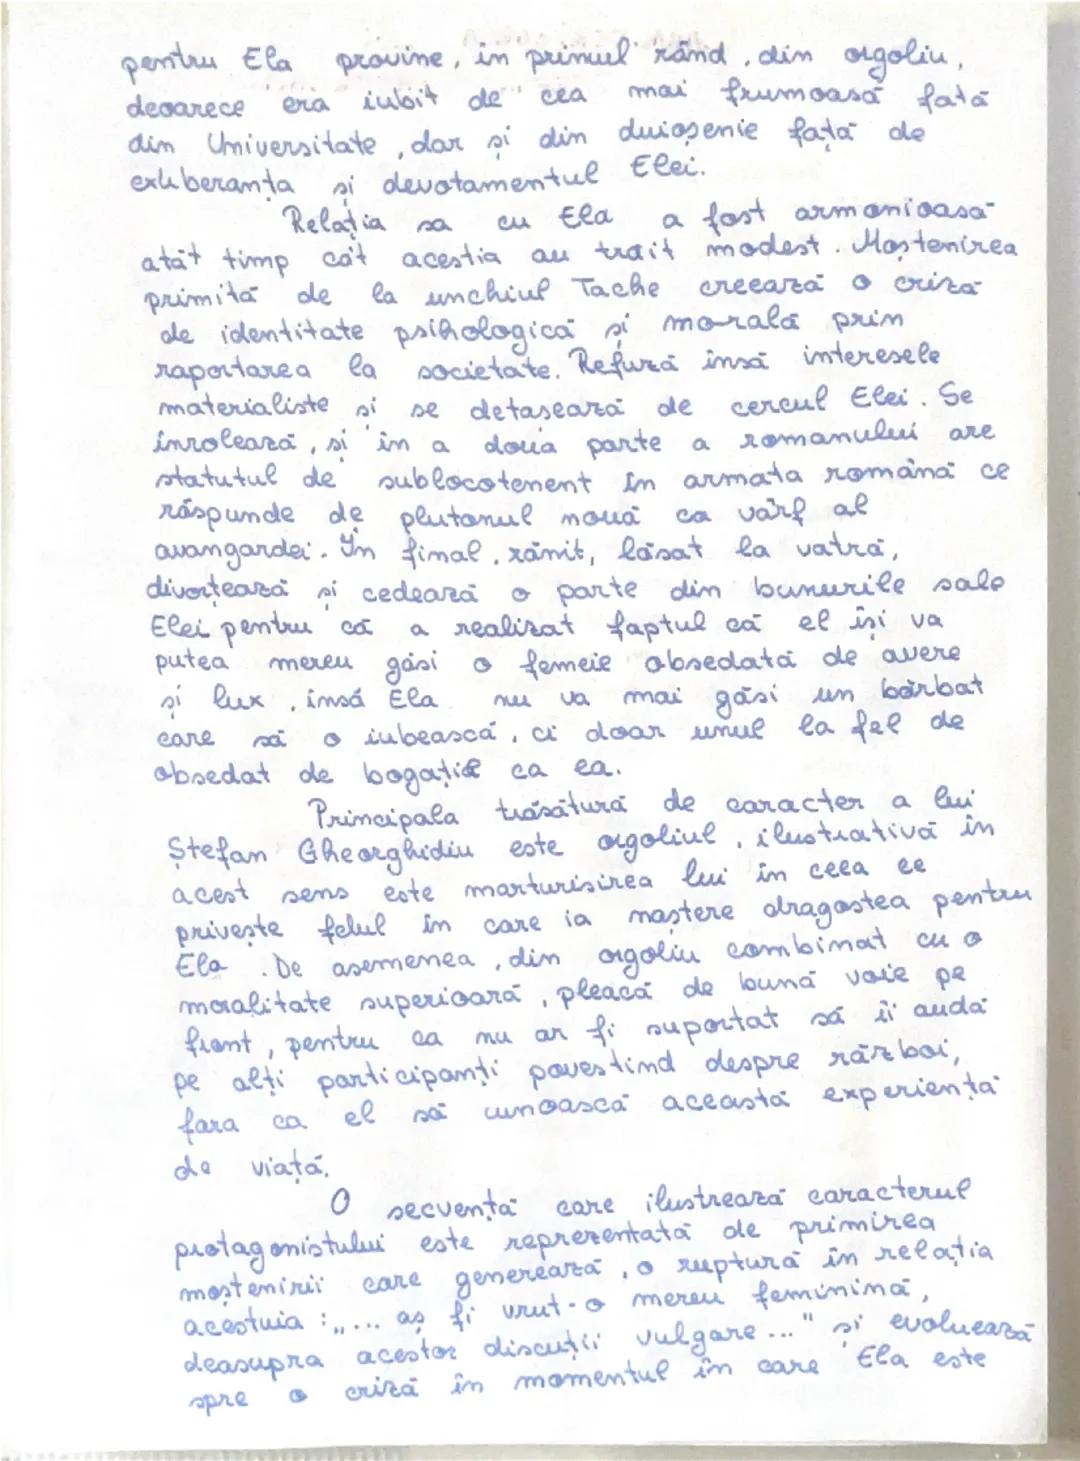 pentru Ela provine, în primul rând, din orgoliu,
deoarece era iubit de cea mai frumoasă fată
din Universitate, dar și din duioșenie față de
exuberanța și devotamentul Elei.
Relația sa cu Ela a fost armonioasă
atât timp cât acestia au trăit modest. Moștenirea
primită de la unchiul Tache creează o criză
de identitate psihologică și morală prin
raportarea la societate. Refuză însă interesele
materialiste și se detașează de cercul Elei. Se
înrolează, și în a doua parte a romanului are
statutul de sublocotenent în armata română ce
răspunde de plutonul nouă ca vârf al
avangardei. În final, rănit, lăsat la vatră,
divorțează și cedează o parte din bunurile sale
Elei pentru că a realizat faptul că el își va
putea mereu găsi o femeie obsedată de avere
și lux, însă Ela nu va mai găsi un bărbat
care să o iubească, ci doar unul la fel de
obsedat de bogație ca ea.
Principala trăsătură de caracter a lui
Ștefan Gheorghidiu este orgoliul, ilustrativă în
acest sens este marturisirea lui în ceea ce
privește felul în care ia naștere dragostea pentru
Ela. De asemenea, din orgoliu combinat cu o
moralitate superioară, pleacă de bună voie pe
front, pentru ca nu ar fi suportat să îi audă
pe alți participanți povestind despre război,
fara ca el să cunoască această experiență
de viață.
O secvență care ilustrează caracterul
protagonistului este reprezentată de primirea
moștenirii care generează, o ruptură în relația
acestuia: „... aș fi vrut-o mereu feminină,
deasupra acestor discuții vulgare..." și evoluează
spre o criză în momentul în care Ela este